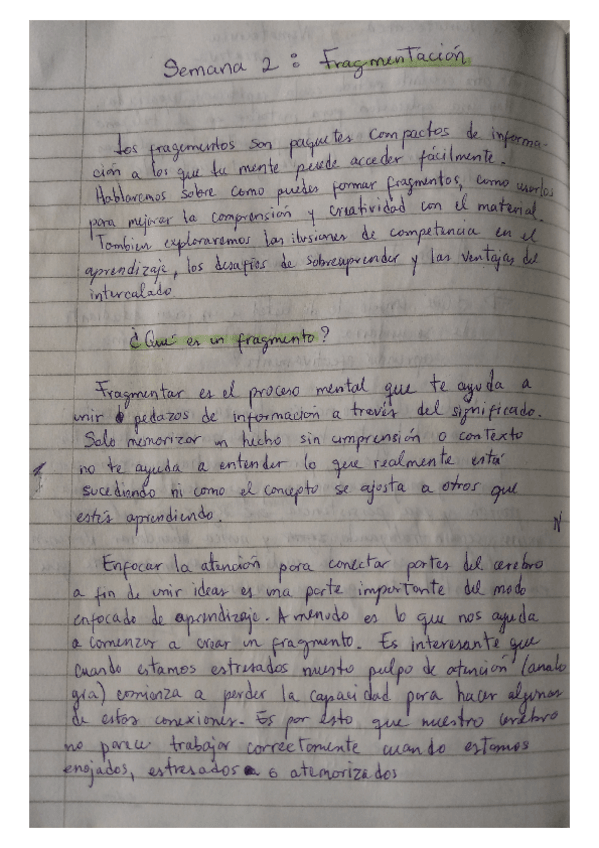 Semana 2: Fragmentación
Los fragementos son paquetes compactos de informa-
ción a los que tu mente puede acceder fácilmente.
Hablaremos sobre como puedes formar fragmentos, como usarlos
para mejorar la comprensión y creatividad con el material.
Tambien exploraremos las ilusiones de competencia en el
aprendizaje, los desafíos de sobreaprender y las ventajas del
intercalado
¿Que es un fragmento?
Fragmentar es el proceso mental que te ayuda a
unir pedazos de informacion a través del significado.
Solo memorizar un hecho sin comprensión o contexto
no te ayuda a entender lo que realmente está
sucediendo ni como el concepto se ajusta a otros que
estés aprendiendo.
N
Enfocar la atención para conectar partes del cerebro
a fin de unir ideas es una parte importante del modo
enfocado de aprendizaje. A menudo es lo que nos ayuda
a comenzar a criar un fragmento. Es interesante que
cuando estamos estresados nuesto pulpo de atención (analo
gía) comienza a perder la capacidad para hacer algunas
de estas conexiones. Es por esto que nuestro cerebro
no parece trabajar correctamente cuando estamos
enojados, estresados o atemorizados